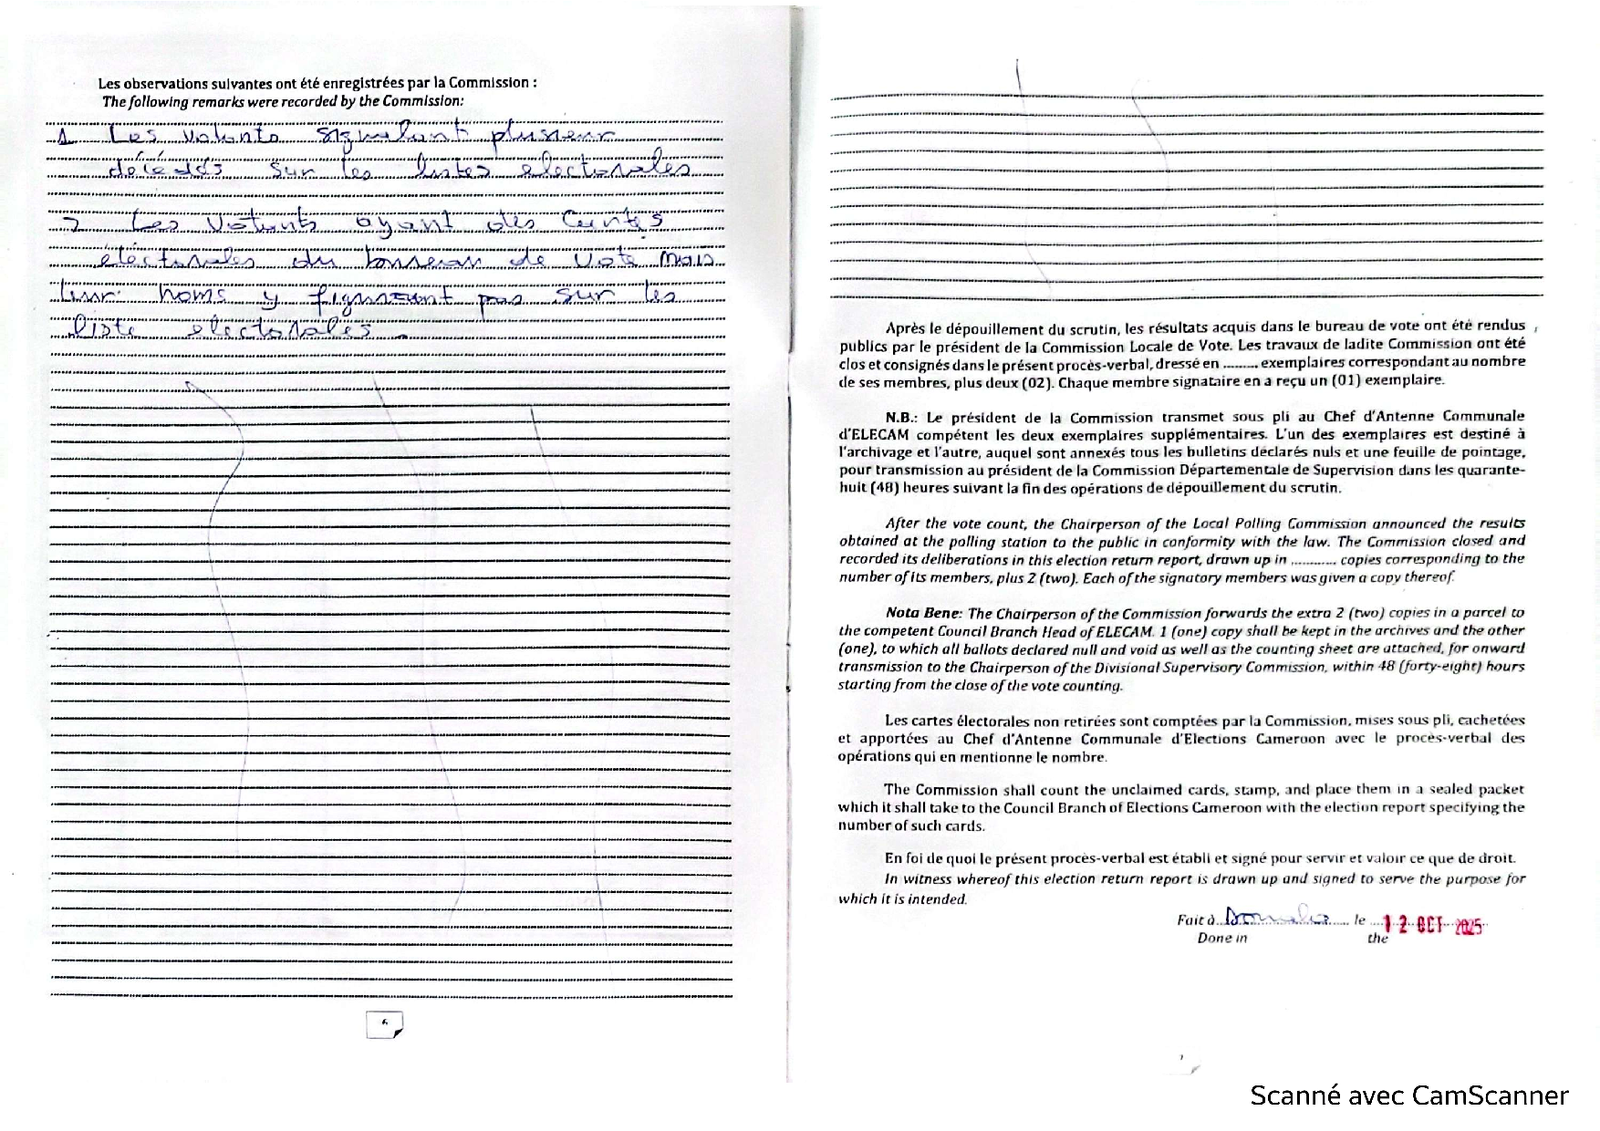 Les observations suivantes ont été enregistrées par la Commission :
The following remarks were recorded by the Commission:
1 Les votants signalant plusieur
décédés sur les listes electorales
2 Les Votants ayant des Cartes
électorales du bureau de Vote mais
leur noms y figurant pas sur les
liste electorales.
6
Après le dépouillement du scrutin, les résultats acquis dans le bureau de vote ont été rendus
publics par le président de la Commission Locale de Vote. Les travaux de ladite Commission ont été
clos et consignés dans le présent procès-verbal, dressé en ......... exemplaires correspondant au nombre
de ses membres, plus deux (02). Chaque membre signataire en a reçu un (01) exemplaire.
N.B.: Le président de la Commission transmet sous pli au Chef d'Antenne Communale
d'ELECAM compétent les deux exemplaires supplémentaires. L'un des exemplaires est destiné à
l'archivage et l'autre, auquel sont annexés tous les bulletins déclarés nuls et une feuille de pointage,
pour transmission au président de la Commission Départementale de Supervision dans les quarante-
huit (48) heures suivant la fin des opérations de dépouillement du scrutin.
After the vote count, the Chairperson of the Local Polling Commission announced the results
obtained at the polling station to the public in conformity with the law. The Commission closed and
recorded its deliberations in this election return report, drawn up in ........... copies corresponding to the
number of its members, plus 2 (two). Each of the signatory members was given a copy thereof.
Nota Bene: The Chairperson of the Commission forwards the extra 2 (two) copies in a parcel to
the competent Council Branch Head of ELECAM. 1 (one) copy shall be kept in the archives and the other
(one), to which all ballots declared null and void as well as the counting sheet are attached, for onward
transmission to the Chairperson of the Divisional Supervisory Commission, within 48 (forty-eight) hours
starting from the close of the vote counting.
Les cartes électorales non retirées sont comptées par la Commission, mises sous pli, cachetées
et apportées au Chef d'Antenne Communale d'Elections Cameroon avec le procès-verbal des
opérations qui en mentionne le nombre.
The Commission shall count the unclaimed cards, stamp, and place them in a sealed packet
which it shall take to the Council Branch of Elections Cameroon with the election report specifying the
number of such cards.
En foi de quoi le présent procès-verbal est établi et signé pour servir et valoir ce que de droit.
In witness whereof this election return report is drawn up and signed to serve the purpose for
which it is intended.
Fait à le 12 OCT 2025
Done in the
Scanné avec CamScanner